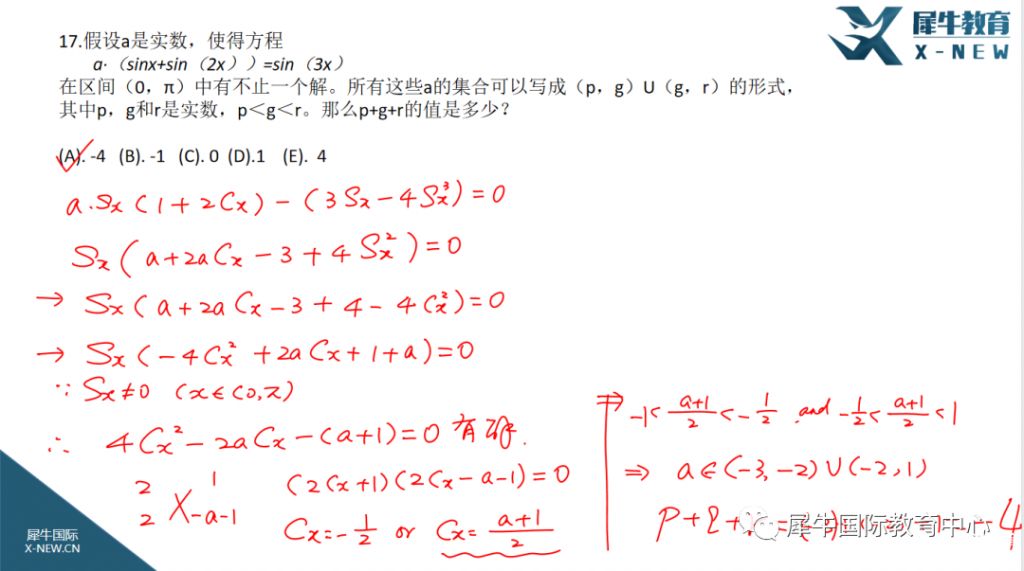 犀牛教育
X-NEW
17.假设a是实数，使得方程
a·（sinx+sin（2x））=sin（3x）
在区间（0，π）中有不止一个解。所有这些a的集合可以写成（p，g）U（g，r）的形式，
其中p，g和r是实数，p＜g＜r。那么p+g+r的值是多少？
(A). -4 (B). -1 (C). 0 (D).1 (E). 4
a.Sx(1+2Cx)-(3Sx-4Sx³)=0
Sx(a+2aCx-3+4Sx²)=0
→ Sx(a+2aCx-3+4-4Cx²)=0
→ Sx(-4Cx²+2aCx+1+a)=0
∵ Sx≠0 (x∈(0,π)
∴ 4Cx²-2aCx-(a+1)=0 有解.
2 1
2 X -a-1
(2Cx+1)(2Cx-a-1)=0
Cx=-1/2 or Cx=(a+1)/2
⇒ -1<(a+1)/2<-1/2 and -1/2<(a+1)/2<1
⇒ a∈(-3,-2)∪(-2,1)
犀牛国际教育中心
犀牛国际
X-NEW.CN